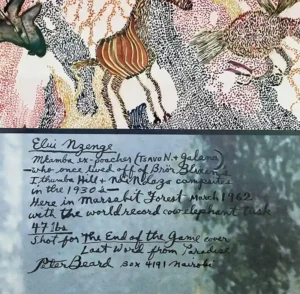 Elui Nzenge
Mkamba ex-poacher (Tsavo N. + Galana)
—who once lived off of Bror Blixen's
Ithumba Hill + campsites
in the 1930's—
Here in Marsabit Forest March 1962
with the world record cow elephant tusk
47 lbs
Shot for The End of the Game cover
Last Word from Paradise
Peter Beard Box 4191 Nairobi